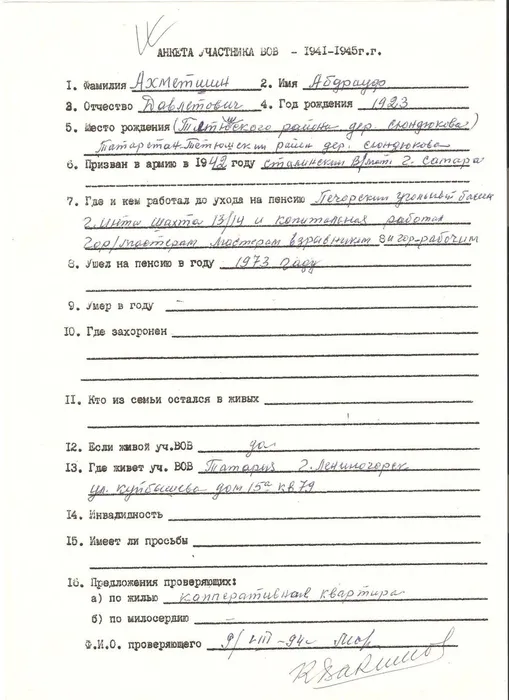 АНКЕТА УЧАСТНИКА ВОВ - 1941-1945г.г.
1. Фамилия Ахметшин 2. Имя Абдрауф
3. Отчество Давлетович 4. Год рождения 1923
5. Место рождения (Тетюшского района дер. Сюндюкова)
Татарстан Тетюшский район дер. Сюндюкова
6. Призван в армию в 1942 году Сталинским В/мати г. Самара
7. Где и кем работал до ухода на пенсию Печорский угольный
г. Инта шахта 13/14 и копитальная работал
Гор/мастерам мастерам взравником и гор-рабочим
8. Ушел на пенсию в году 1973 году
9. Умер в году
10. Где захоронен
11. Кто из семьи остался в живых
12. Если живой уч.ВОВ да
13. Где живет уч. ВОВ Татария г. Лениногорск
ул. Куйбышева дом 15а кв. 79
14. Инвалидность
15. Имеет ли просьбы
16. Предложения проверяющих:
а) по жилью копперативная квартира
б) по милосердию
Ф.И.О. проверяющего 9/VIII-94г